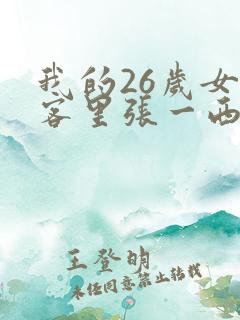 我的26歲女
客里張一西
王登明
未经同意禁止转载